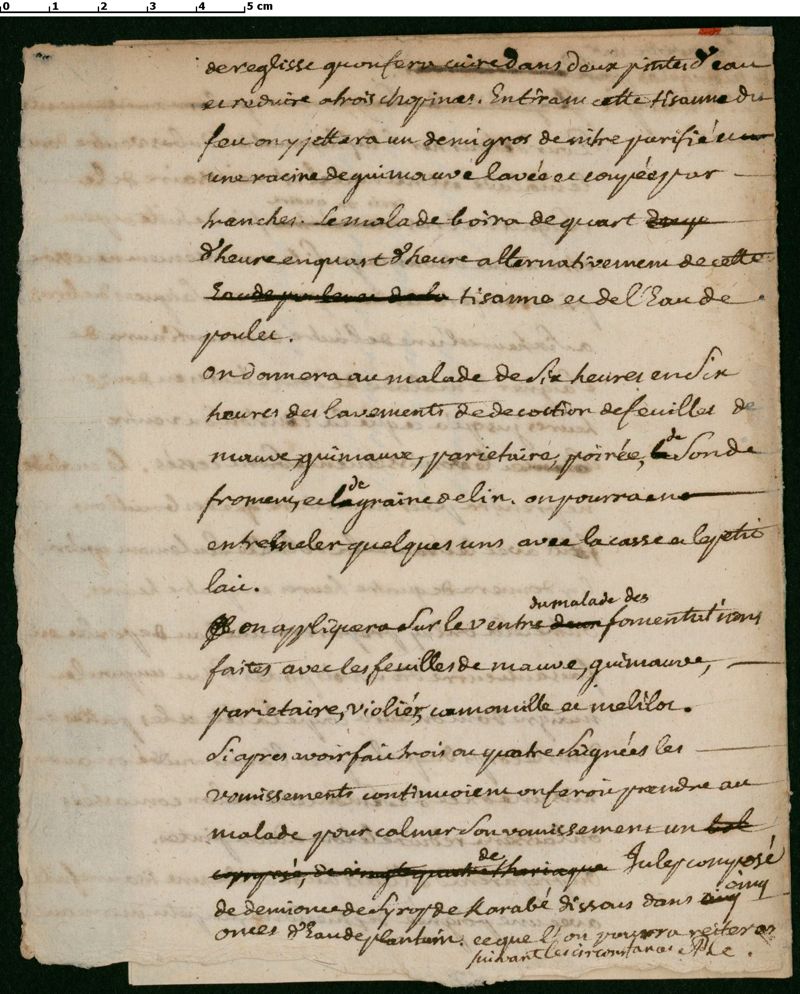 0 1 2 3 4 5 cm
de reglisse qu'on fera cuire dans deux pintes d'eau
et reduire a trois chopines. En tirant cette tisanne du
feu on y jettera un demi gros de nitre purifié et
une racine de guimauve lavée et coupée par
tranches. Le malade boira de quart
d'heure en quart d'heure alternativement de cette
Eau de poulet et de la tisanne et de l'Eau de
poulet.
on donnera au malade de Six heures en Six
heures des lavements de decoction de feuilles de
mauve, guimauve, parietaire, poirée, de Son de
froment, et de graine de lin. on pourra en
entremeler quelques uns avec la casse et le petit
lait.
du malade des
on appliquera Sur le ventre fomentations
faites avec les feuilles de mauve, guimauve,
parietaire, violier, camomille et melilot.
Si apres avoir fait trois ou quatre Saignées les
vomissements continuoient on feroit prendre au
malade pour calmer Son vomissement un bol
composé, de vingt quatre de theriaque Julep composé
de demi once de Syrop de Karabé dissous dans cinq
onces d'Eau de plantain. ce que l'on pourra reiterer
suivant les circonstances